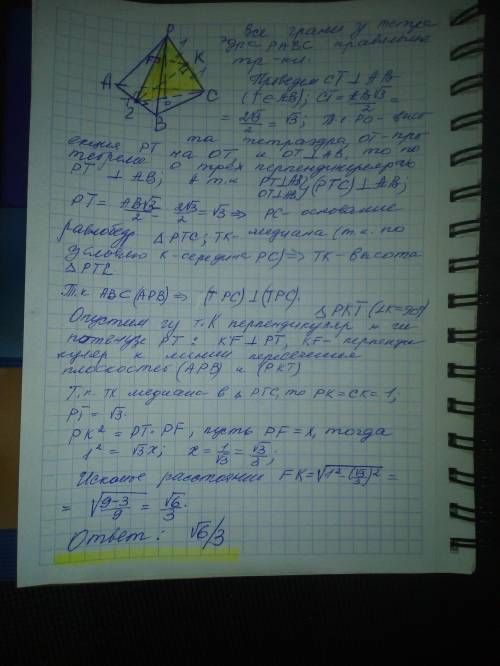 P
1
K
1
A
C
2
O
B
Все грани у тетра
эдра PABC правильные
тр-ки.
Проведем CT ⊥ AB
(T∈AB); CT = AB√3/2 =
= 2√3/2 = √3; т.к PO - высо
та тетраэдра, OT - про
екция PT на OT, и OT⊥AB, то по
теореме о трех перпендикулярах
PT ⊥ AB; А т.к PT⊥AB; OT⊥AB} (PTC) ⊥ AB;
PT = AB√3/2 = 2√3/2 = √3 ⇒ PC - основание
равнобедр. △PTC; TK - медиана (т.к. по
условию K - середина PC) ⇒ TK - высота
△PTC
Т.к ABC (APB) ⇒ (TPC) ⊥ (TPC).
△PKT (∠K=90°)
Опустим из т. K перпендикуляр к ги
потенузе PT: KF ⊥ PT, KF - перпенди
куляр к линии пересечения
плоскостей (APB) и (PKT)
Т.к. TK медиана в △ PTC, то PK = CK = 1;
PT = √3.
PK² = PT · PF, пусть PF = x, тогда
1² = √3x; x = 1/√3 = √3/3;
Искомое расстояние FK = √(1² - (√3/3)²) =
= √((9-3)/9) = √6/3.
Ответ: √6/3